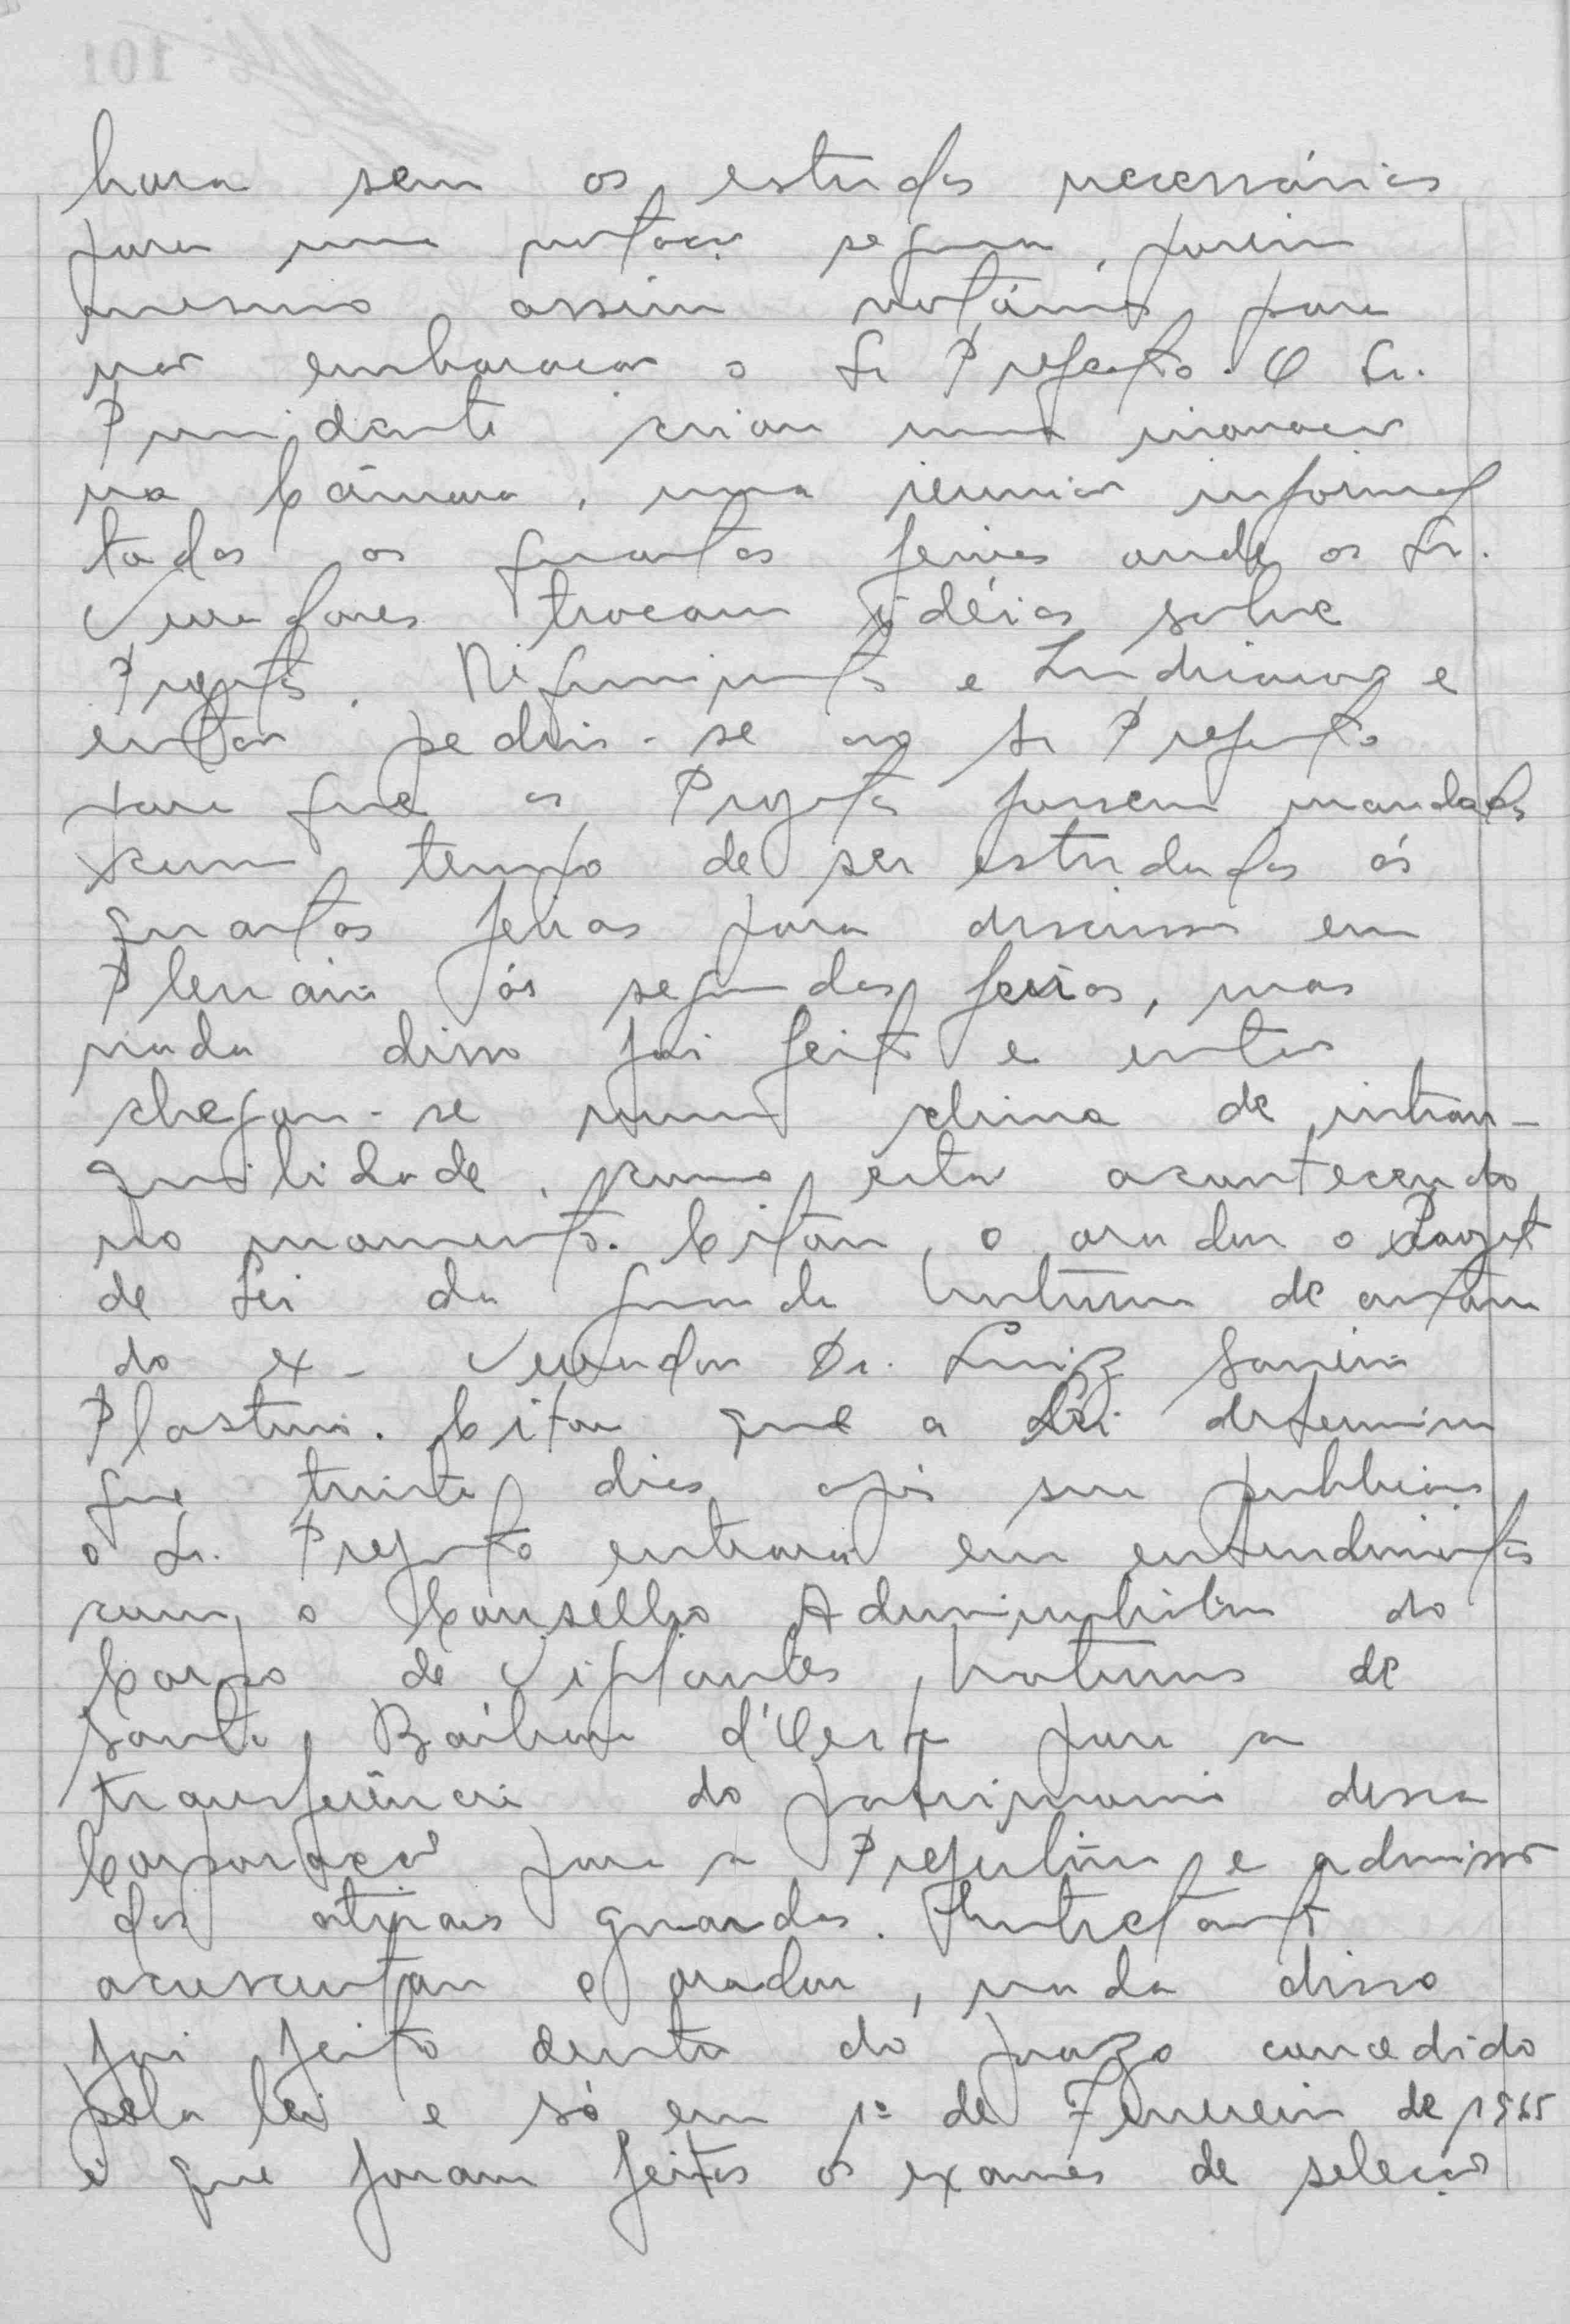 hora sem os estudos necessários
para uma votação segura, porém
mesmo assim votámos para
não embaraçar o Sr Prefeito. O Sr.
Presidente criou uma inovação
na Câmara, uma reunião informal
todas as quartas feiras onde os Sr.
Vereadores trocam idéias sobre
Projetos, Requerimentos e Indicações e
então pediu-se ao Sr Prefeito
para que os Projetos fossem mandados
com tempo de ser estudados ás
quartas feiras para discussão em
Plenário ás segundas feiras, mas
nada disso foi feito e então
chegou-se num clima de intran-
quilidade, como está acontecendo
no momento. Citou, o orador o Projeto
de Lei da guarda noturna de autoria
do ex-Vereador Dr. Luiz
Citou que a Lei determina
que trinta dias após sua publicação
o Sr. Prefeito entrará em entendimentos
com o Conselho Administrativo do
Corpo de Vigilantes Noturnos de
Santa Bárbara d'Oeste para a
transferência do patrimonio dessa
Corporação para a Prefeitura e admissão
dos atuais guardas. Entretanto
acrescentou o orador, nada disso
foi feito dentro do prazo concedido
pela lei e só em 1º de Fevereiro de 1965
é que foram feitos os exames de seleção